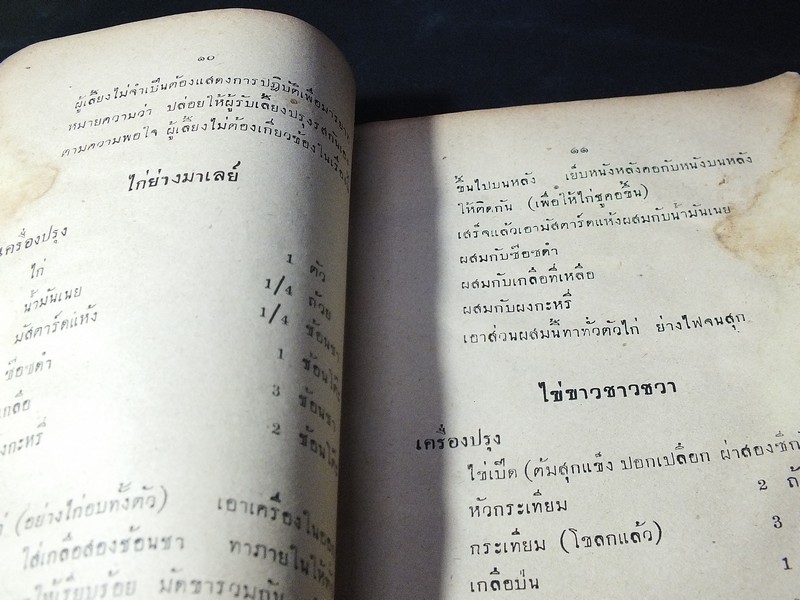 ๑๐
ผู้เลี้ยงไม่จำเป็นต้องแสดงการปฏิบัติเพื่อมารยาท
หมายความว่า ปล่อยให้ผู้รับเลี้ยงปรุงรสกันเอง
ตามความพอใจ ผู้เลี้ยงไม่ต้องเกี่ยวข้องในเรื่องนี้
ไก่ย่างมาเลย์
เครื่องปรุง
ไก่ 1 ตัว
น้ำมันเนย 1/4 ถ้วย
มัสตาร์ดแห้ง 1/4 ช้อนชา
ซ๊อซดำ 1 ช้อนโต๊ะ
เกลือ 3 ช้อนชา
ผงกะหรี่ 2 ช้อนโต๊ะ
(อย่างไก่อบทั้งตัว) เอาเครื่องในออก
ใส่เกลือสองช้อนชา ทาภายในให้ทั่ว
ให้เรียบร้อย มัดขารวมกัน
๑๑
ขึ้นไปบนหลัง เย็บหนังหลังคอกับหนังบนหลัง
ให้ติดกัน (เพื่อให้ไก่ชูคอขึ้น)
เสร็จแล้วเอามัสตาร์ดแห้งผสมกับน้ำมันเนย
ผสมกับซ๊อซดำ
ผสมกับเกลือที่เหลือ
ผสมกับผงกะหรี่
เอาส่วนผสมนี้ทาทั่วตัวไก่ ย่างไฟจนสุก
ไข่ขาวชาวชวา
เครื่องปรุง
ไข่เป็ด (ต้มสุกแข็ง ปอกเปลือก ผ่าสองซีก)
หัวกระเทียม 2
กระเทียม (โขลกแล้ว) 3
เกลือป่น 1